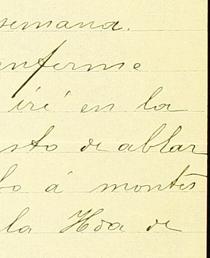 semana.
enferme
iré en la
sto de ablar
lo á montes
la Hda de